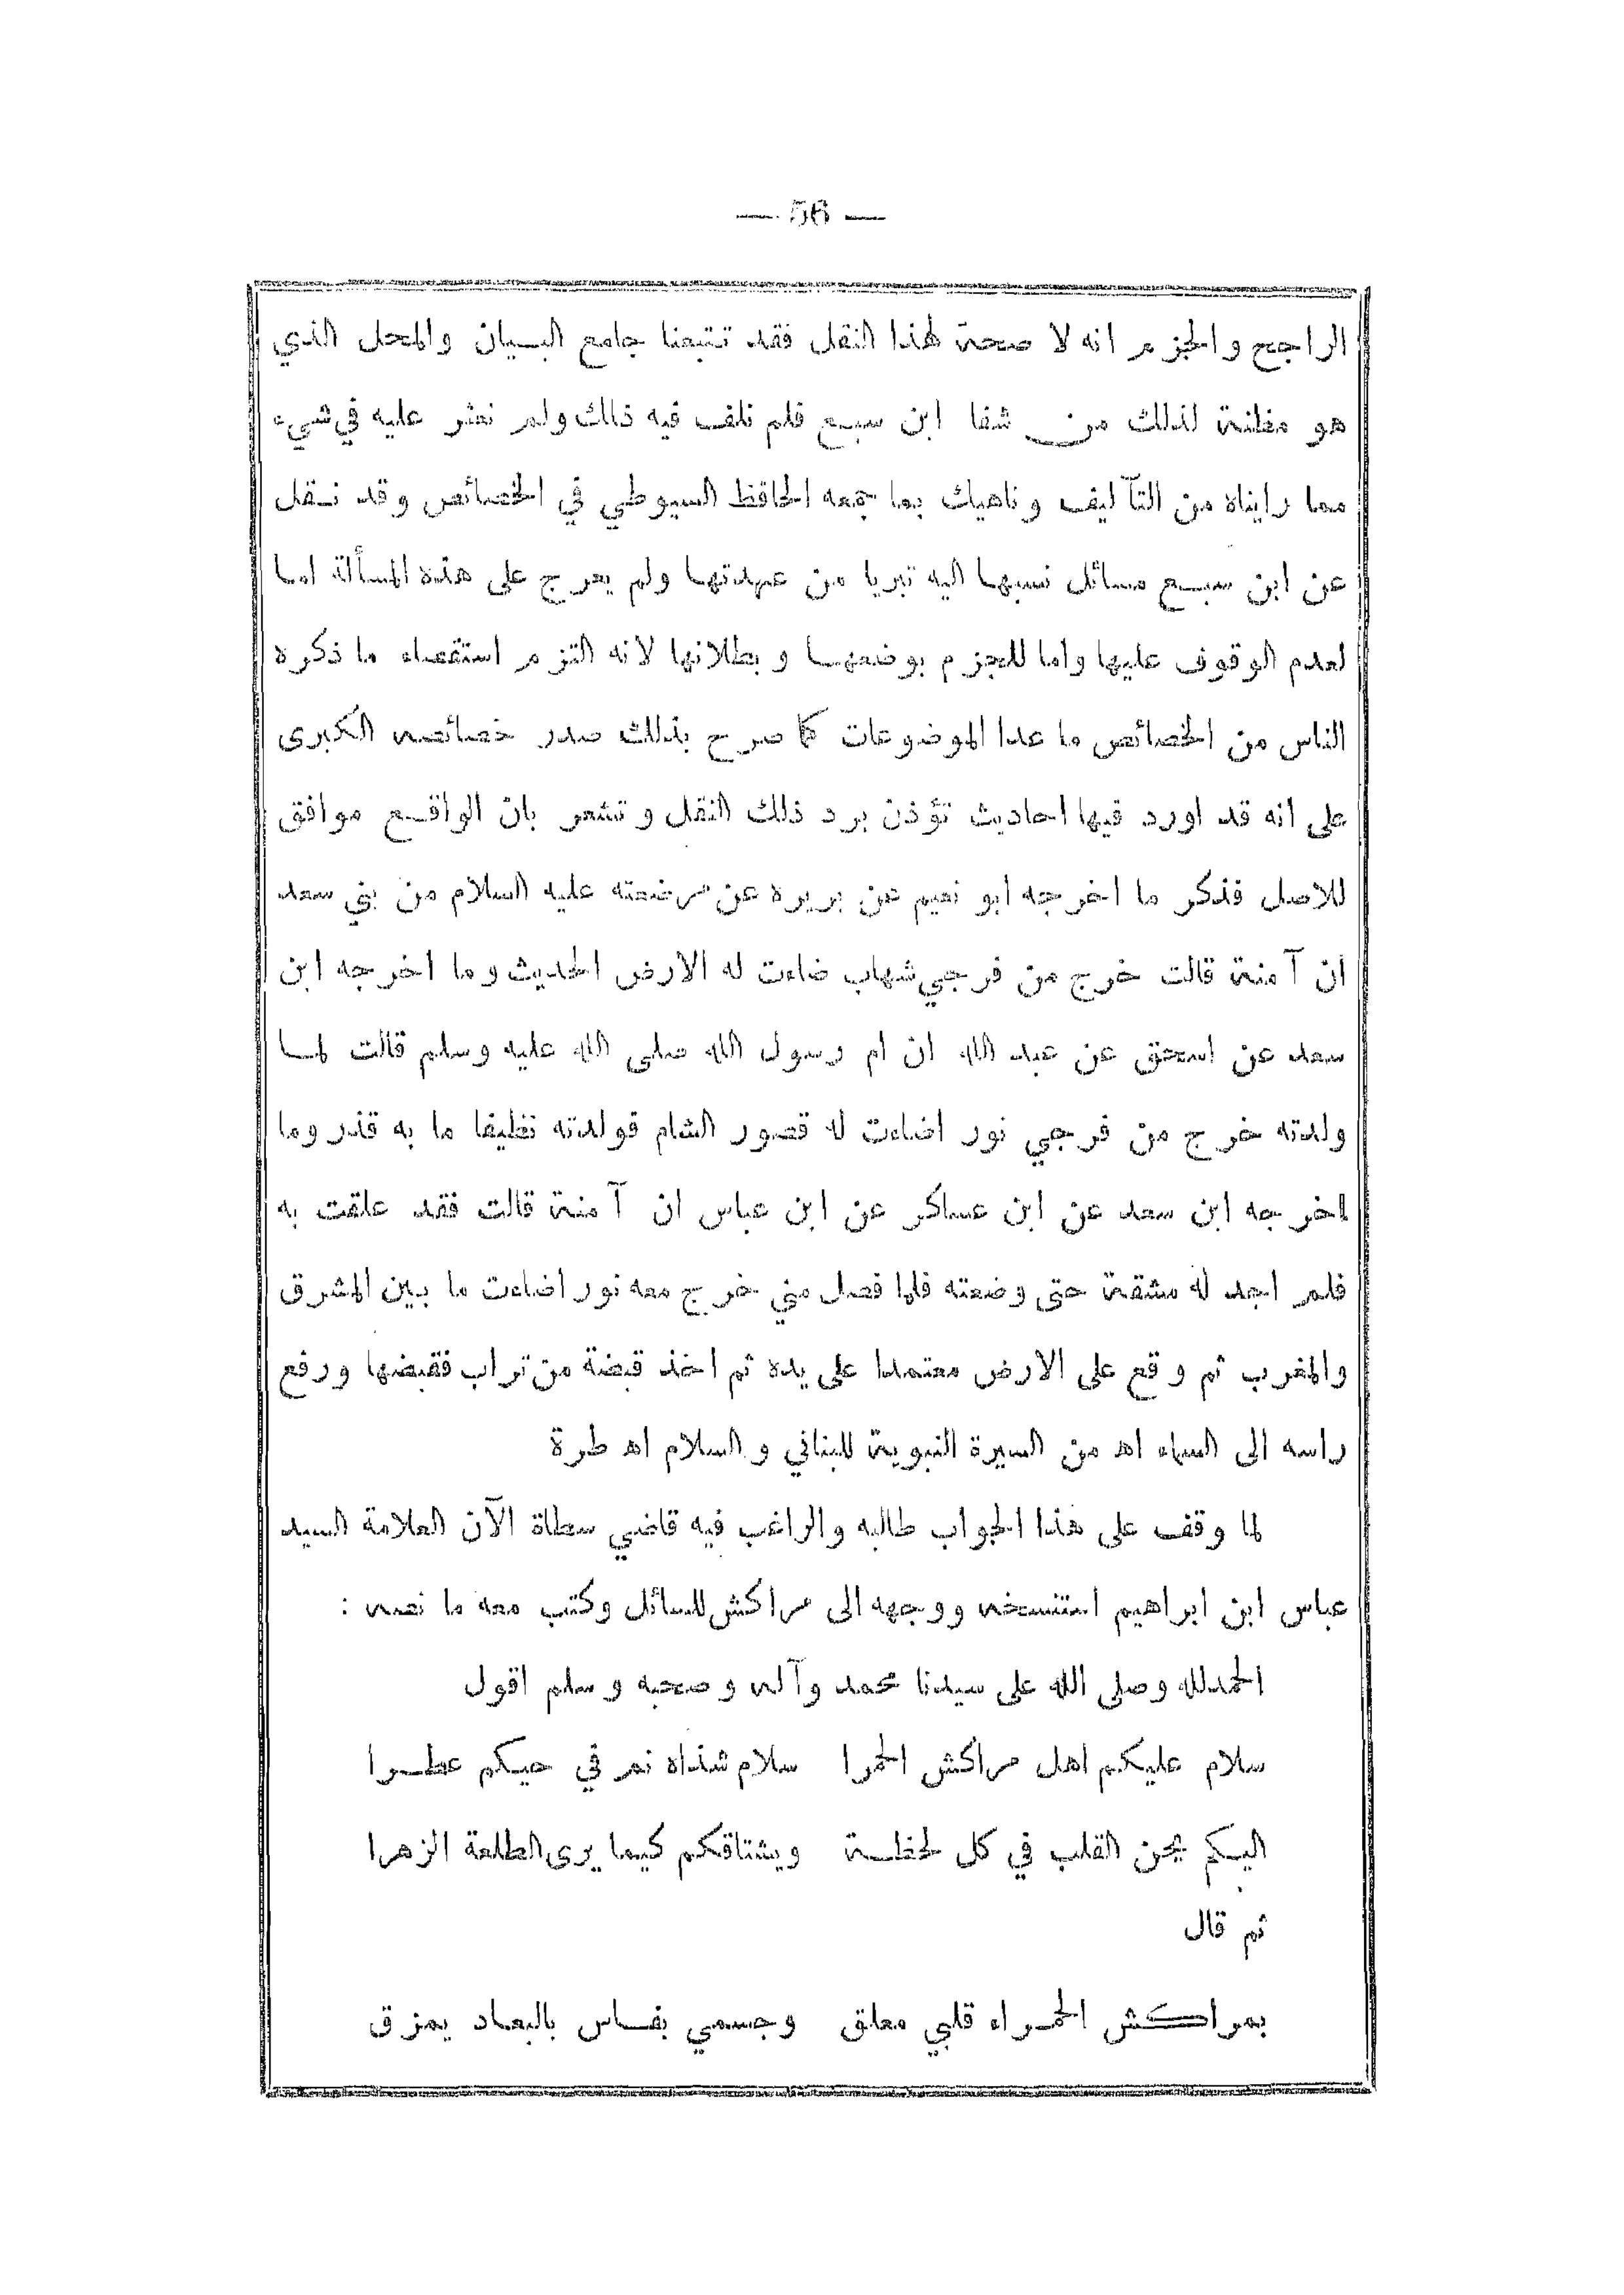 — 56 —
الراجح والجزم انه لا صحة لهذا النقل فقد تتبعنا جامع البيان والمحل الذي
هو مظنة لذلك من شفا ابن سبع فلم نلف فيه ذلك ولم نعثر عليه في شيء
مما رايناه من التآليف وناهيك بما جمعه الحافظ السيوطي في الخصائص وقد نقل
عن ابن سبع مسائل نسبها اليه تبريا من عهدتها ولم يعرج على هذه المسألة اما
لعدم الوقوف عليها واما للجزم بوضعها وبطلانها لانه التزم استقصاء ما ذكره
الناس من الخصائص ما عدا الموضوعات كما صرح بذلك صدر خصائصه الكبرى
على انه قد اورد فيها احاديث تؤذن برد ذلك النقل وتشعر بان الواقع موافق
للاصل فذكر ما اخرجه ابو نعيم عن بريره عن مرضعته عليه السلام من بني سعد
ان آمنة قالت خرج من فرجي شهاب ضاءت له الارض الحديث وما اخرجه ابن
سعد عن اسحق عن عبد الله ان ام رسول الله صلى الله عليه وسلم قالت لما
ولدته خرج من فرجي نور اضاءت له قصور الشام فولدته نظيفا ما به قذر وما
اخرجه ابن سعد عن ابن عساكر عن ابن عباس ان آمنة قالت فقد علقت به
فلم اجد له مشقة حتى وضعته فلما فصل مني خرج معه نور اضاءت ما بين المشرق
والمغرب ثم وقع على الارض معتمدا على يده ثم اخذ قبضة من تراب فقبضها ورفع
راسه الى السماء اه من السيرة النبوية للبناني والسلام اه طرة
لما وقف على هذا الجواب طالبه والراغب فيه قاضي سطاة الآن العلامة السيد
عباس ابن ابراهيم استنسخه ووجهه الى مراكش للسائل وكتب معه ما نصه :
الحمدلله وصلى الله على سيدنا محمد وآله وصحبه وسلم اقول
سلام عليكم اهل مراكش الحمرا سلام شذاه نم في حيكم عطرا
اليكم يحن القلب في كل لحظة ويشتاقكم كيما يرى الطلعة الزهرا
ثم قال
بمراكش الحمراء قلبي معلق وجسمي بفاس بالبعاد يمزق